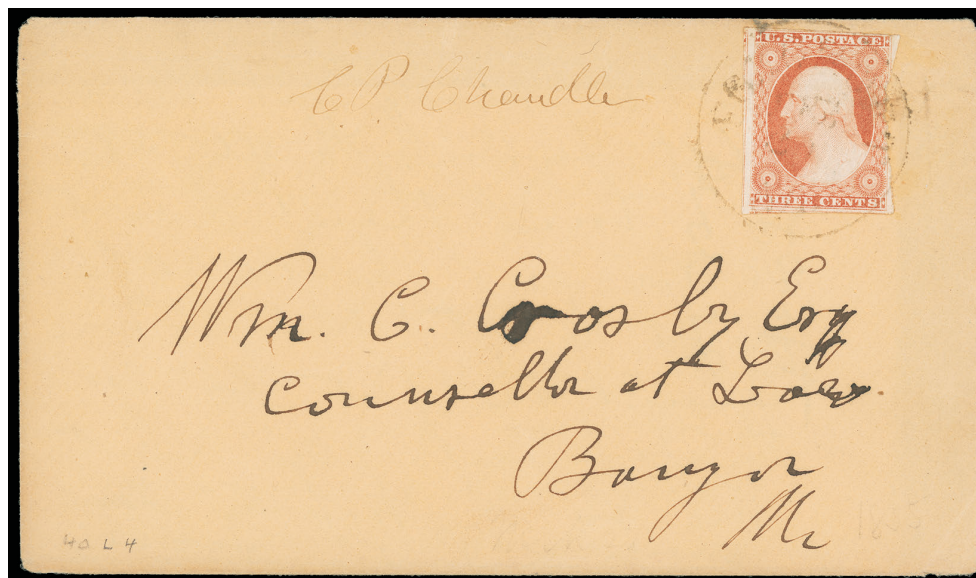 C P Chandler
U.S. POSTAGE
THREE CENTS
Wm. C. Crosby Esq
Counsellor at Law.
Bangor
Me
40 L 4